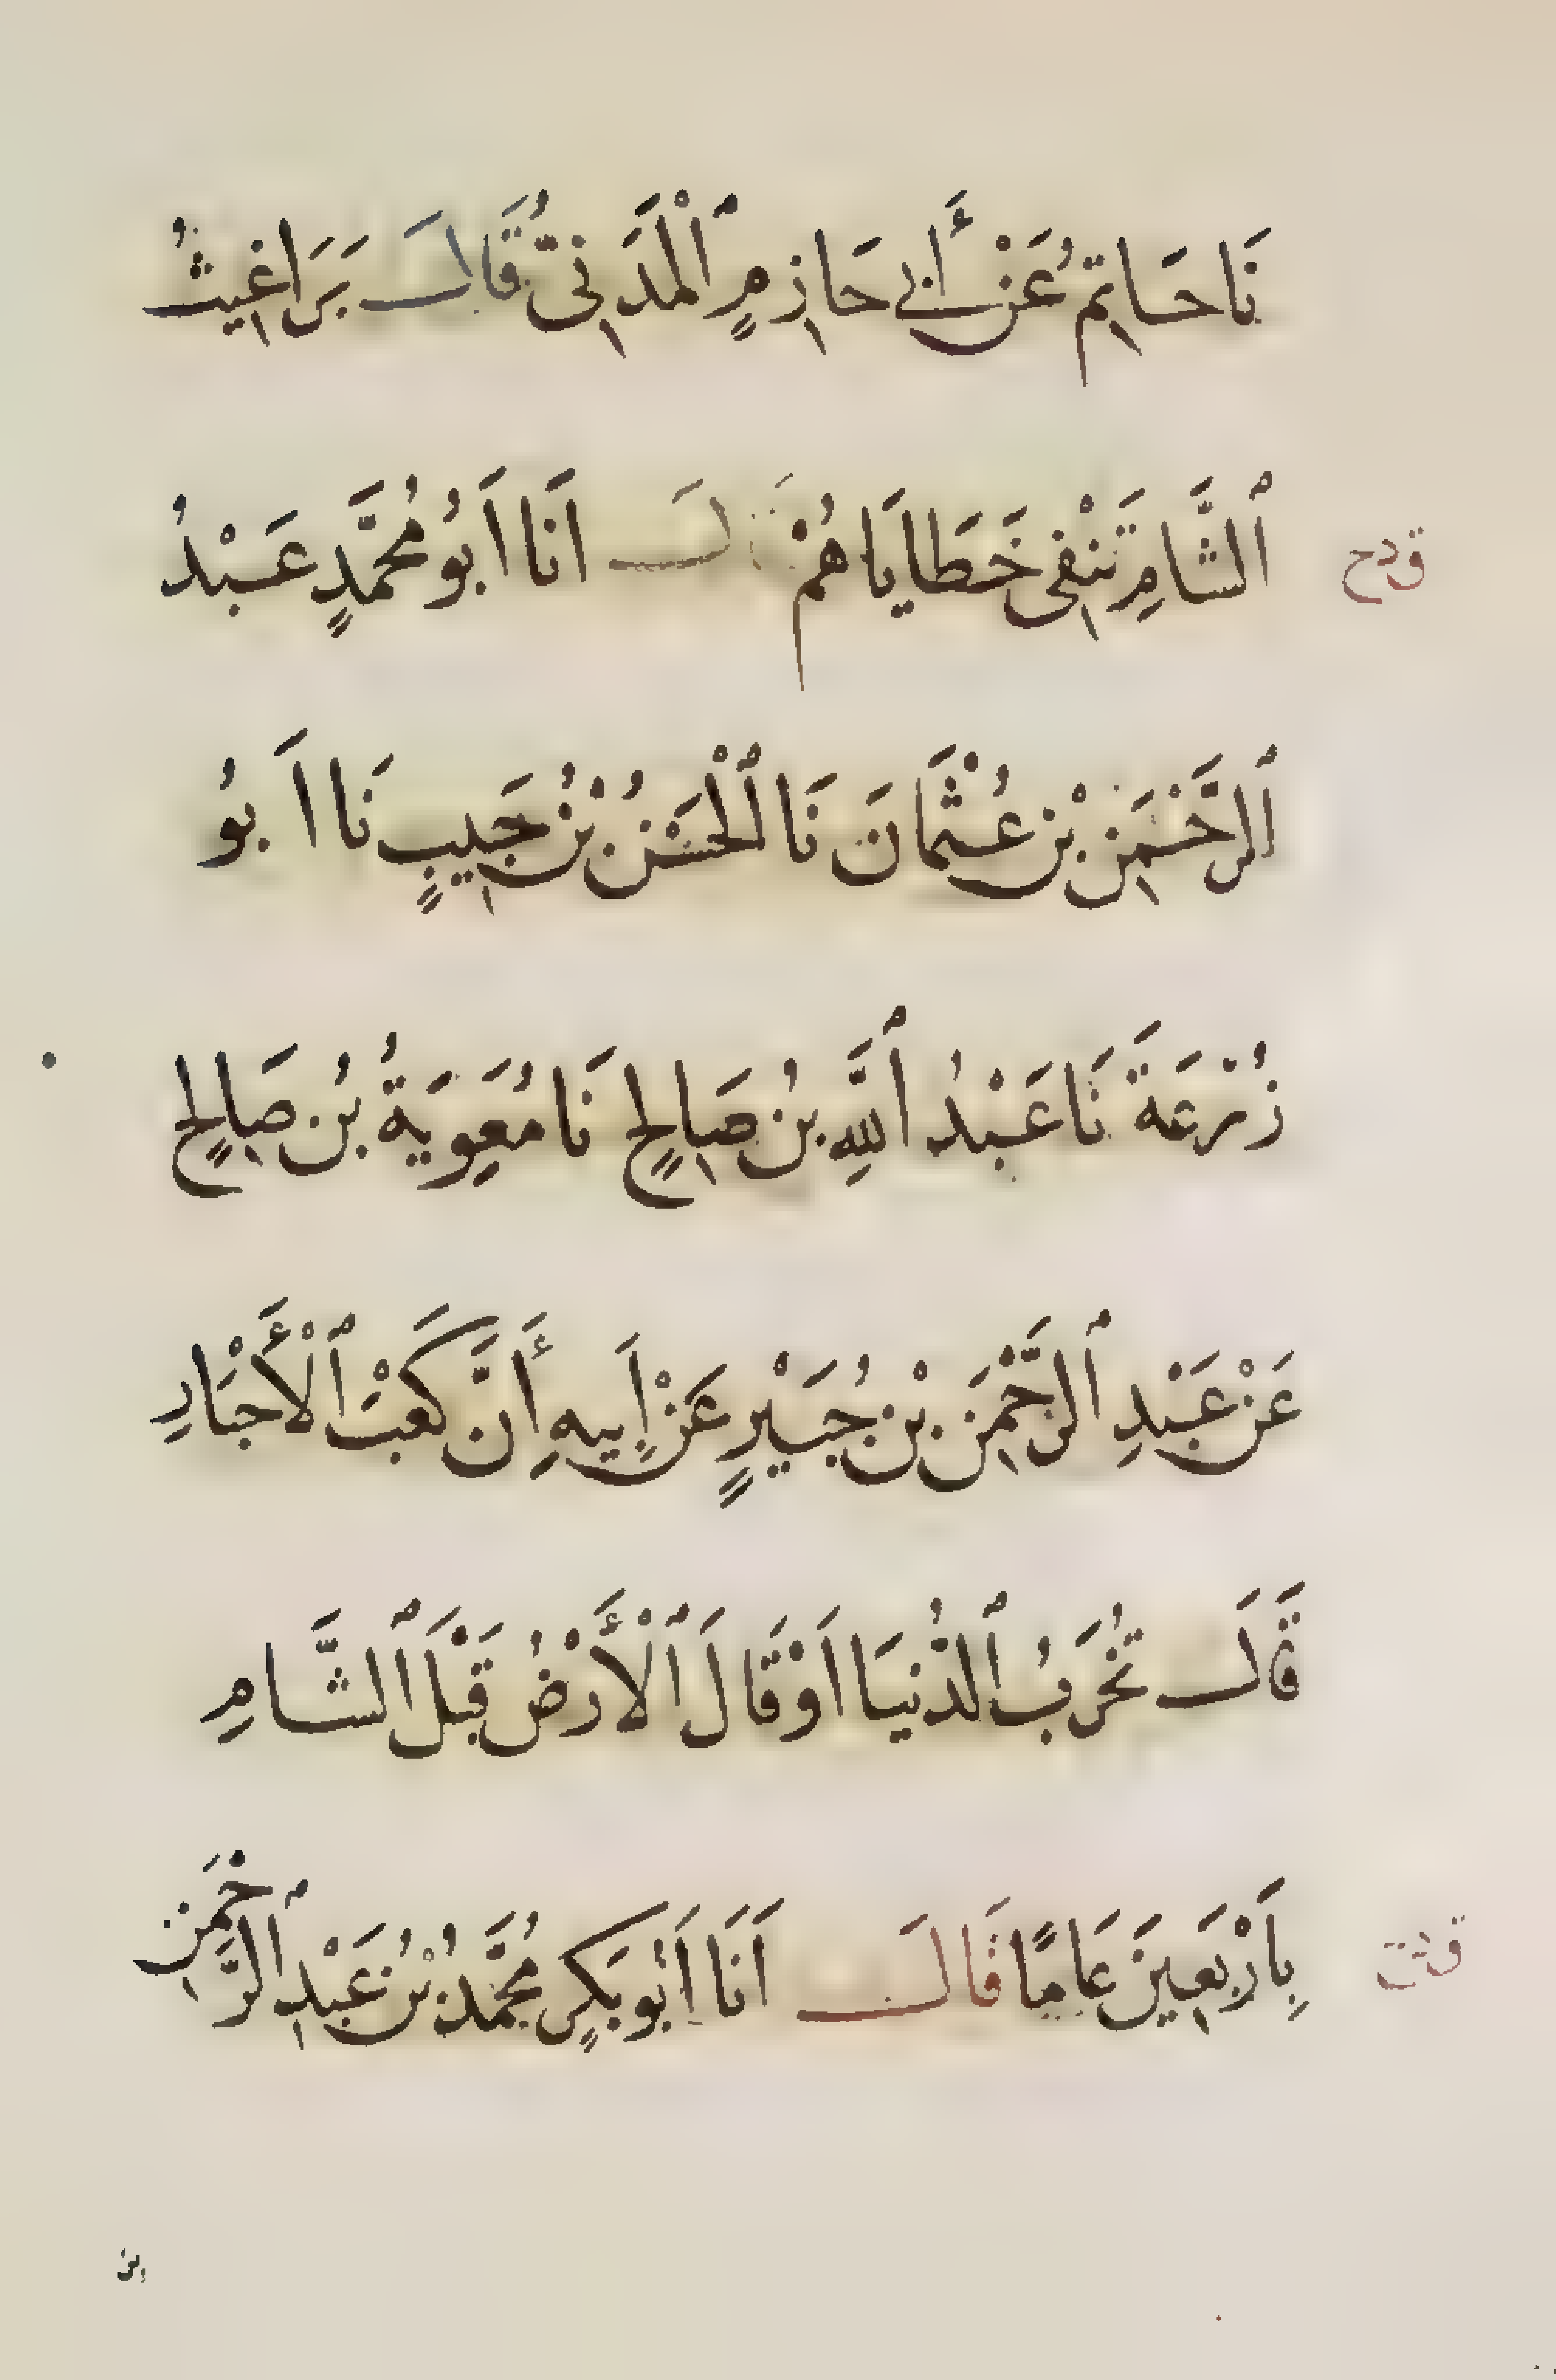 نَا حَاتِمُ عَنْ أَبِي حَازِمٍ ٱلْمَدَنِيُّ قَالَ بَرَاغِيثُ
ٱلشَّامِ تَنْفِى خَطَايَاهُمْ قَالَ اَنَا اَبُو مُحَمَّدٍ عَبْدُ
ٱلرَّحْمَنِ بْنِ عُثْمَانَ نَا ٱلْحَسَنُ بْنُ حَبِيبٍ نَا اَبُو
زُرْعَةَ نَا عَبْدُ ٱللَّهِ بْنُ صَالِحٍ نَا مُعَوِيَةُ بْنُ صَالِحٍ
عَنْ عَبْدِ ٱلرَّحْمَنِ بْنِ جُبَيْرٍ عَنْ اَبِيهِ أَنَّ كَعْبَ ٱلْأَحْبَارِ
قَالَ تَخْرَبُ ٱلدُّنْيَا اَوْ قَالَ ٱلْأَرْضُ قَبْلَ ٱلشَّامِ
بِاَرْبَعِينَ عَامًا قَالَ اَنَا اَبُو بَكْرٍ مُحَمَّدُ بْنُ عَبْدِ ٱلرَّحْمَنِ
بن